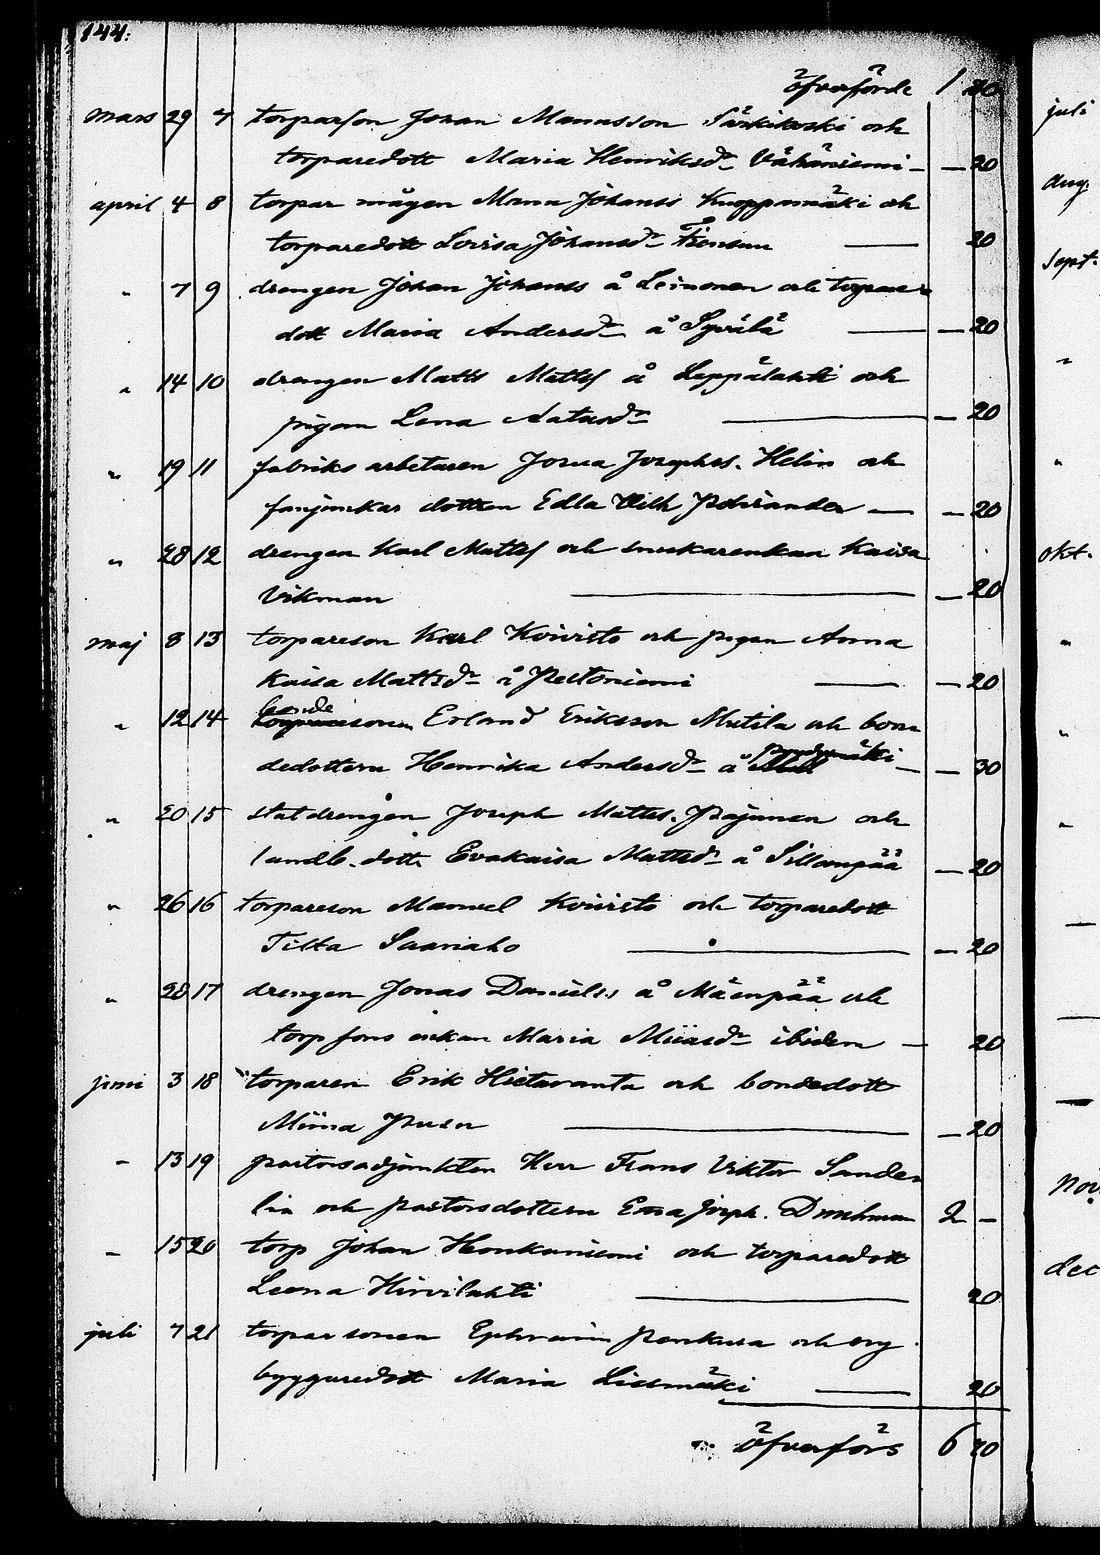 144.
öfverförde 1 20
mars 29 7 torparson Johan Manasson Särkikoski och
torparedott Maria Henriksdr Vähäniemi — — 20
april 4 8 torpar mågen Manu Johanss Knoppamäki och
torparedott Lovisa Johansdr — 20
" 7 9 drengen Johan Johanss å Leinonen och torpare
dott Maria Andersdr å Syrälä — — 20
" 14 10 drengen Matts Mattss å Leppälahti och
pigan Lena — — 20
" 19 11 fabriks arbetaren Josua Josephss. Helin och
fanjunkar dottern Edla Vilh — — 20
" 28 12 drengen Karl Mattss och enkan Kaisa
Vikman — — 20
maj 8 13 torpareson Karl Koivisto och pigan Anna
Kaisa Mattsdr å Peltoniemi — — 20
" 12 14 bonde sonen Erland Eriksson Mutila och bon
dedottern Henrika Andersdr å — — 30
" 20 15 statdrengen Joseph Mattss. Pajunen och
landb. dott. Evakaisa Mattsdr å Sillanpää — 20
" 26 16 torpareson Manuel Koivisto och torparedott
Tilta Saariaho — — 20
" 28 17 drengen Jonas Danielss å Mäenpää och
torp sons enkan Maria ibidem — 20
juni 3 18 torparen Erik Hietaranta och bondedott
Miina — — 20
" 13 19 pastorsadjunkten Herr Frans Viktor Sande
lin och pastorsdottern Josph. 2 —
" 15 20 torp Johan Honkaniemi och torparedott
Leena Hirvilahti — 20
juli 7 21 torparsonen Ephraim Penkura och org
byggaredott Maria — 20
öfverförs 6 20
juli
aug.
sept.
"
"
okt.
"
"
"
nov
dec